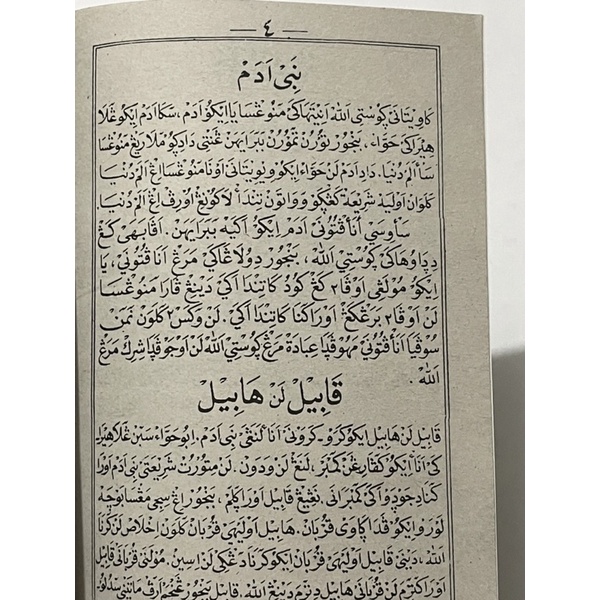 — ٤ —
نَبِيْ اٰدَمْ
كَاوِيْتَانَيْ ڮُوسْتِي اَللّٰهْ اَنِيْتَهَاكَيْ مَنُوڠْسَا يَا اِيْكُوْ اٰدَمْ ، سَكَا اٰدَمْ اِيْكُوْ ڠَلَا
هِيْرَاكَيْ حَوَاءْ ، بَنْجُوْر تُوْرُنْ تَمُوْرُنْ بَبَرَايَهَنْ ڠَنْتِي دَادِيْڮُوْمْلَارْ رِيڠْ مَنُوڠْسَا
سَأَلَمْ دُنْيَا. دَادِ اٰدَمْ لَنْ حَوَاءْ اِيْكُوْ وِيْوِيْتَانَيْ اَوْنَا مَنُوڠْسَا اِڠْ اَلَمْ دُنْيَا
كَلَوَانْ اَوْلَيهْ شَرِيْعَةْ كَڠْڮُوْ وَوَاتَوْنْ تِنْدَاْ لَاكُوْنَيْڠْ اُوْرِڤْ اِڠْ اَلَمْ دُنْيَا
سَأُوسَيْ اَنَاْ ڤُتُوْنَيْ اٰدَمْ اِيْكُوْ اَكَيْهْ بَبَرَايَهَنْ. اَڤَابَهَيْ كَڠْ
دِيْدَاوُهَاكَيْ ڮُوسْتِي اَللّٰهْ، بَنْجُوْر دِوُلَاڠَاكَيْ مَرَڠْ اَنَاْ ڤُتُوْنَيْ، يَا
اِيْكُوْ مُوْلَاهِيْ اَوْڤَا٢ كَڠْ كُوْدُ كَاتِنْدَاْ اَكَيْ دَيْنَيْڠْ ڤَارَا مَنُوڠْسَا
لَنْ اَوْڤَا٢ بَرَڠْ كَڠْ اَوْرَا كْنَا كَاتِنْدَاْ اَكَيْ. لَنْ وَكَسْ٢ كَلَوَنْ تَمَنْ
سُوْڤَيَا اَنَاْ ڤُتُوْنَيْ مَهُوْ ڤَادَا عِبَادَةْ مَرَڠْ ڮُوسْتِي اَللّٰهْ لَنْ اَوْجَوْ ڤَادَا شِرِكْ مَرَڠْ
اَللّٰهْ .
قَابِيْلْ لَنْ هَابِيْلْ
قَابِيْلْ لَنْ هَابِيْلْ اِيْكُوْ كَرَوْ-كَرَوْنَيْ اَنَاْ لَنَڠَيْ نَبِيْ اٰدَمْ. اِبُوْ حَوَاءْ سَبَنْ ڠَلَاهِيْرَا-
كَيْ اَنَاْ اِيْكُوْ كَڤَارِيڠَنْ كَمْبَرْ، لَنَڠْ لَنْ وَدَوْنْ. لَنْ مَنَوْرُتْ شَرِيْعَتَيْ نَبِيْ اٰدَمْ اَوْرَا
كْنَا دِجَوْدَوْاَكَيْ كَمْبَرَانَيْ. نَڠَيْڠْ قَابِيْلْ اَوْرَا كْلَمْ، بَنْجُوْر اِڠْ سِجِيْ مَڠْسَا بَوْچَهْ
لَوْرَوْ اِيْكُوْ ڤَدَا ڮَاوَيْ قُرْبَانْ. هَابِيْلْ اَوْلَيْهَيْ قُرْبَانْ كَلَوَنْ اِخْلَاصْ لَنْ كَرَنَا
اَللّٰهْ ، دَيْنَيْ قَابِيْلْ اَوْلَيْهَيْ قُرْبَانْ اِيْكُوْ كَرَنَا دَڠْكِيْ لَنْ اِسِيْنْ. مُوْلَانَيْ قُرْبَانَيْ قَابِيْلْ
اَوْرَا كْتَرِمْ لَنْ قُرْبَانَيْ هَابِيْلْ دِتَرِمَ دَيْنَيْڠْ اَللّٰهْ. قَابِيْلْ بَنْجُوْر